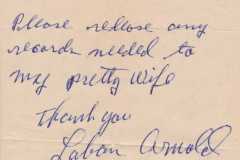 Please release any
records needed to
my pretty wife
Thank you
Laban Arnold